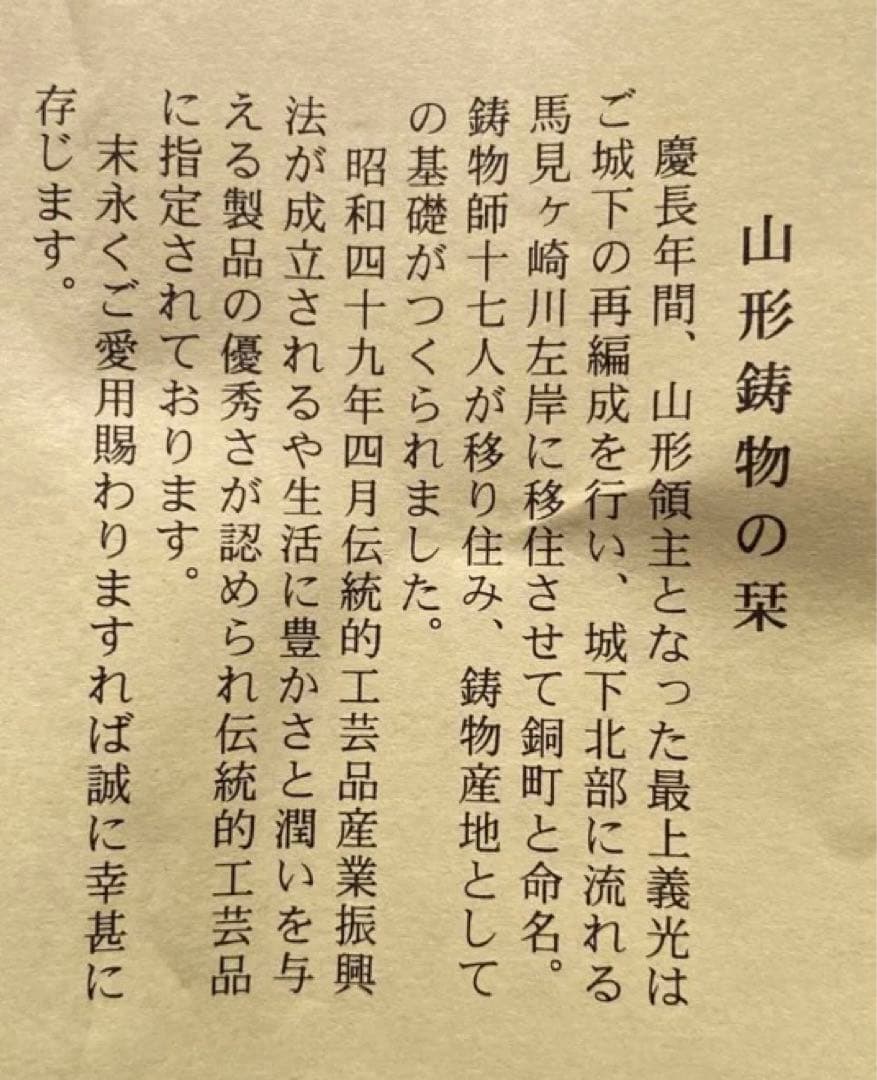 山形鋳物の栞
慶長年間、山形領主となった最上義光は
ご城下の再編成を行い、城下北部に流れる
馬見ヶ崎川左岸に移住させて銅町と命名。
鋳物師十七人が移り住み、鋳物産地として
の基礎がつくられました。
昭和四十九年四月伝統的工芸品産業振興
法が成立されるや生活に豊かさと潤いを与
える製品の優秀さが認められ伝統的工芸品
に指定されております。
末永くご愛用賜わりますれば誠に幸甚に
存じます。